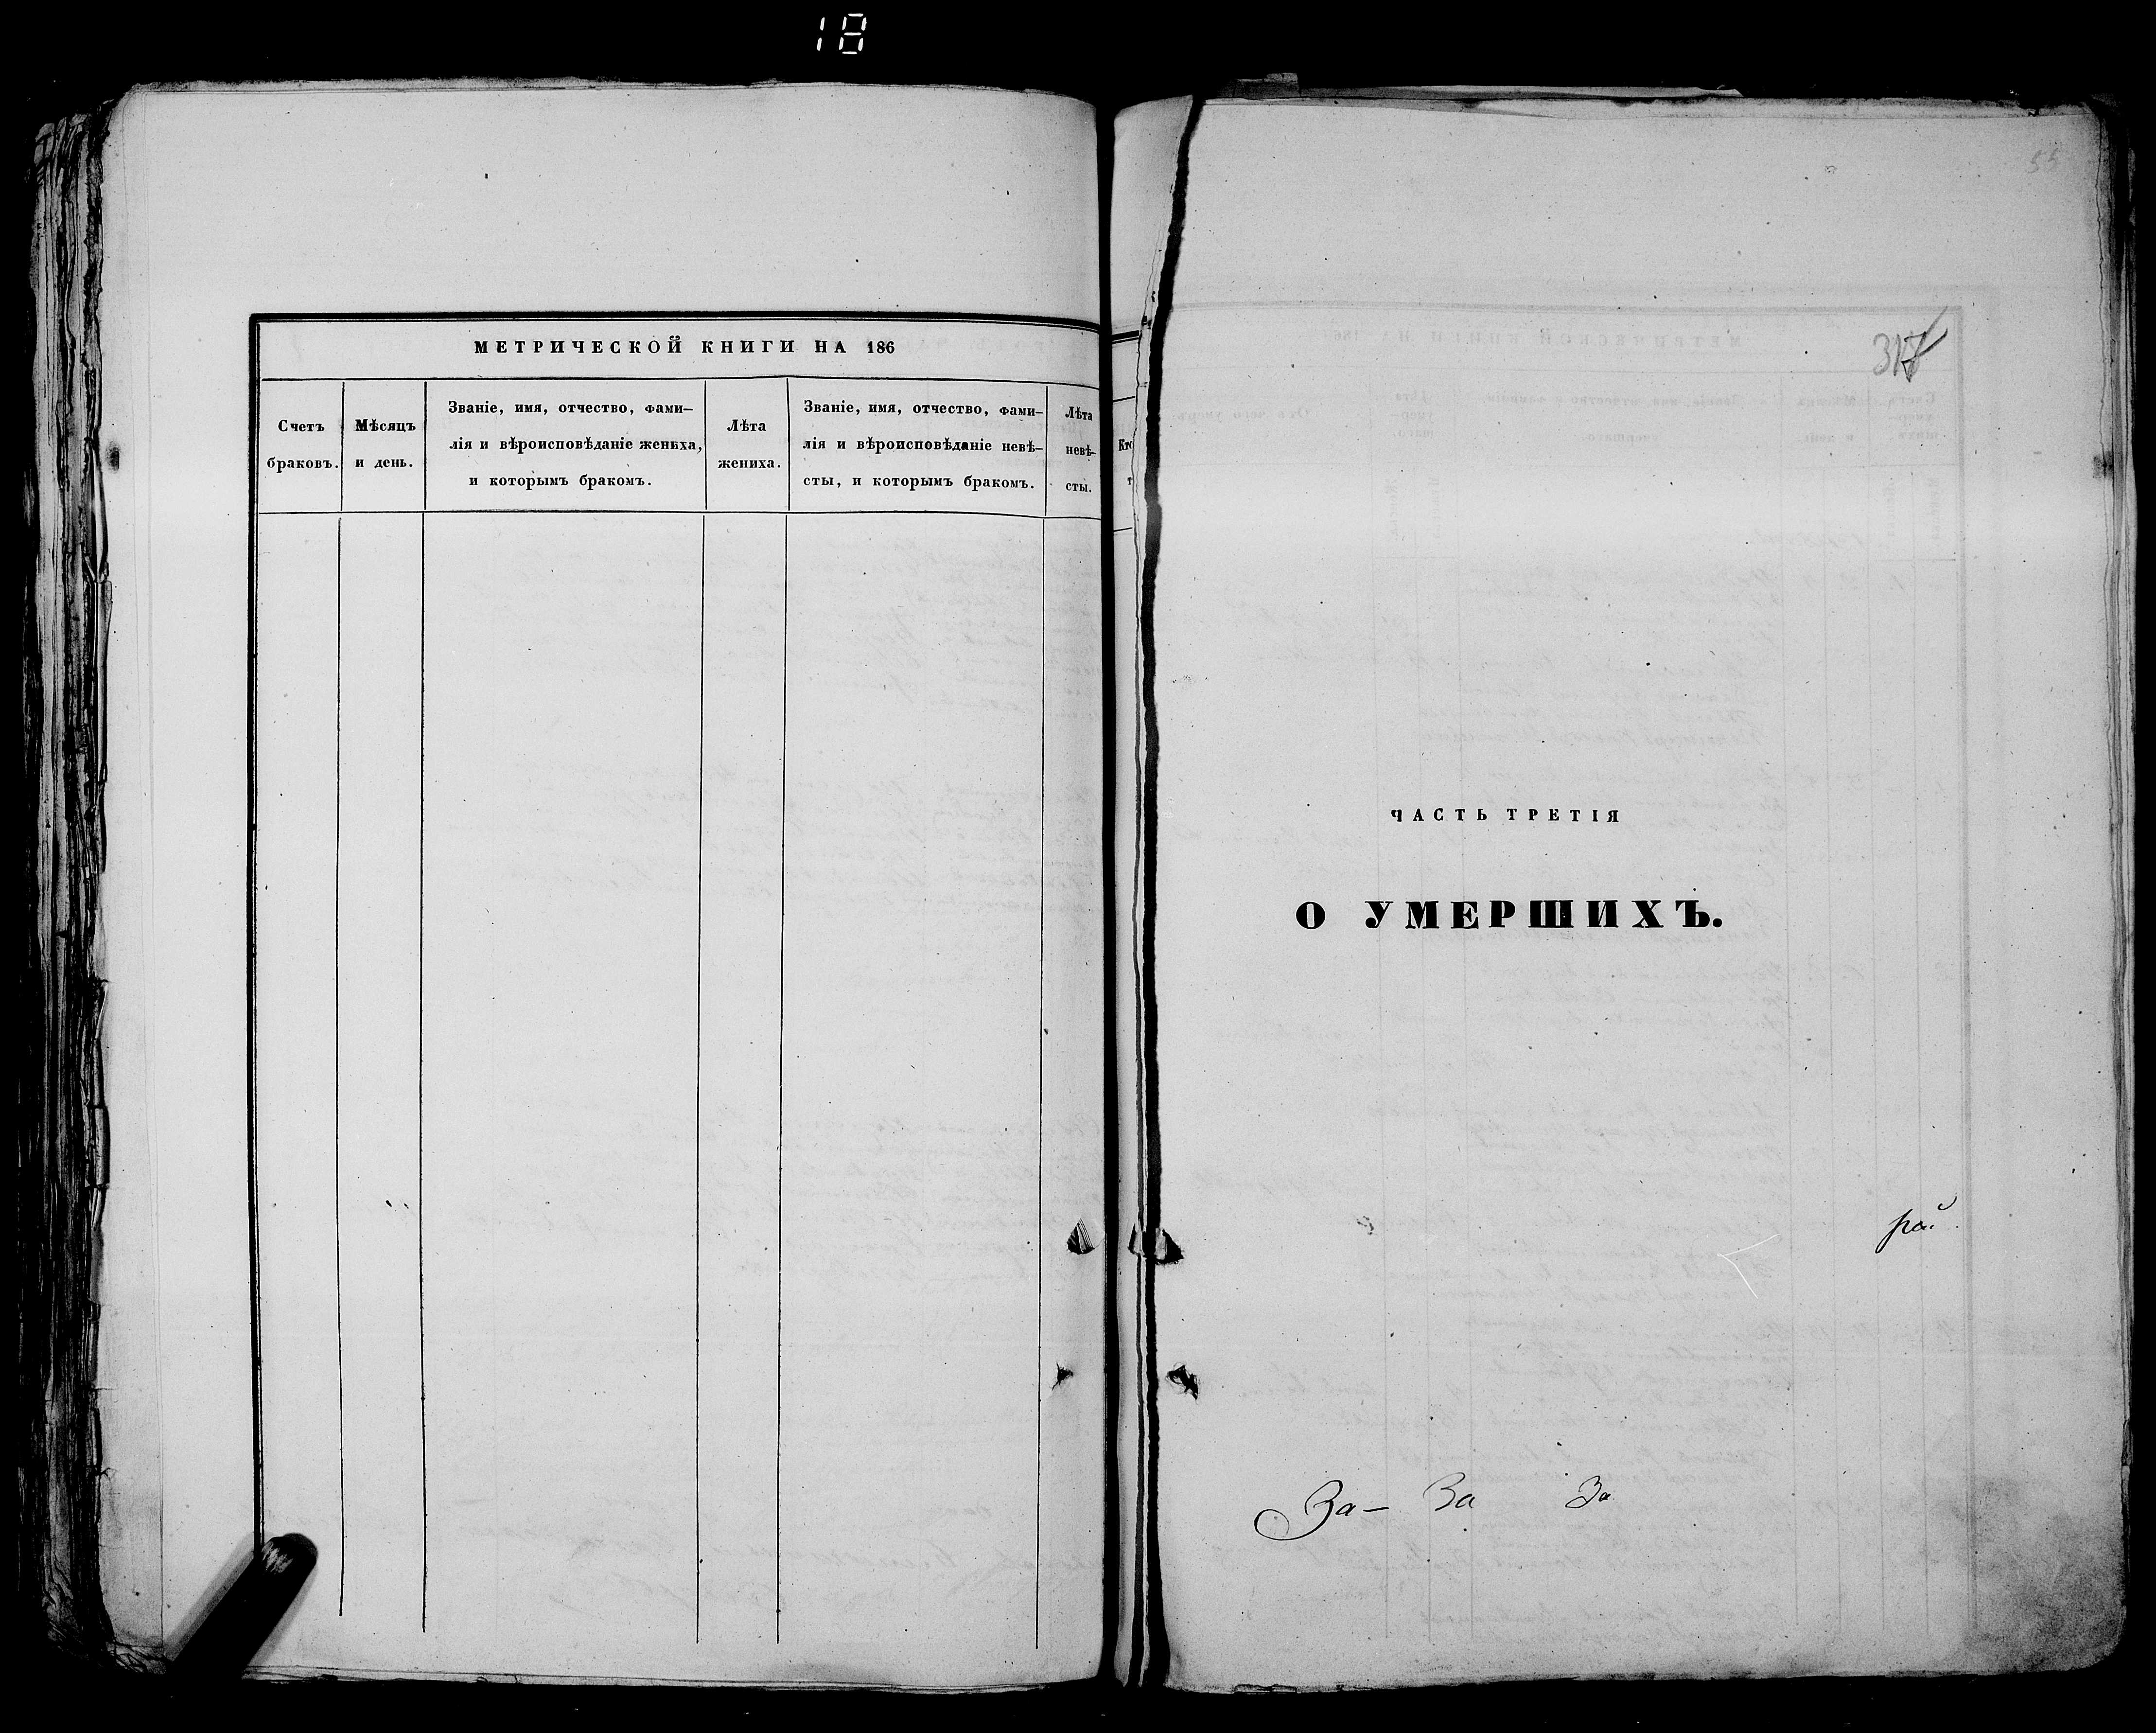 18
МЕТРИЧЕСКОЙ КНИГИ НА 186
Счетъ
браковъ.
Мѣсяцъ
и день.
Званіе, имя, отчество, фами-
лія и вѣроисповѣданіе жениха,
и которымъ бракомъ.
Лѣта
жениха.
Званіе, имя, отчество, фами-
лія и вѣроисповѣданіе невѣ-
сты, и которымъ бракомъ.
Лѣта
невѣ-
сты.
Кто
55
ЧАСТЬ ТРЕТІЯ
О УМЕРШИХЪ.
За— За За